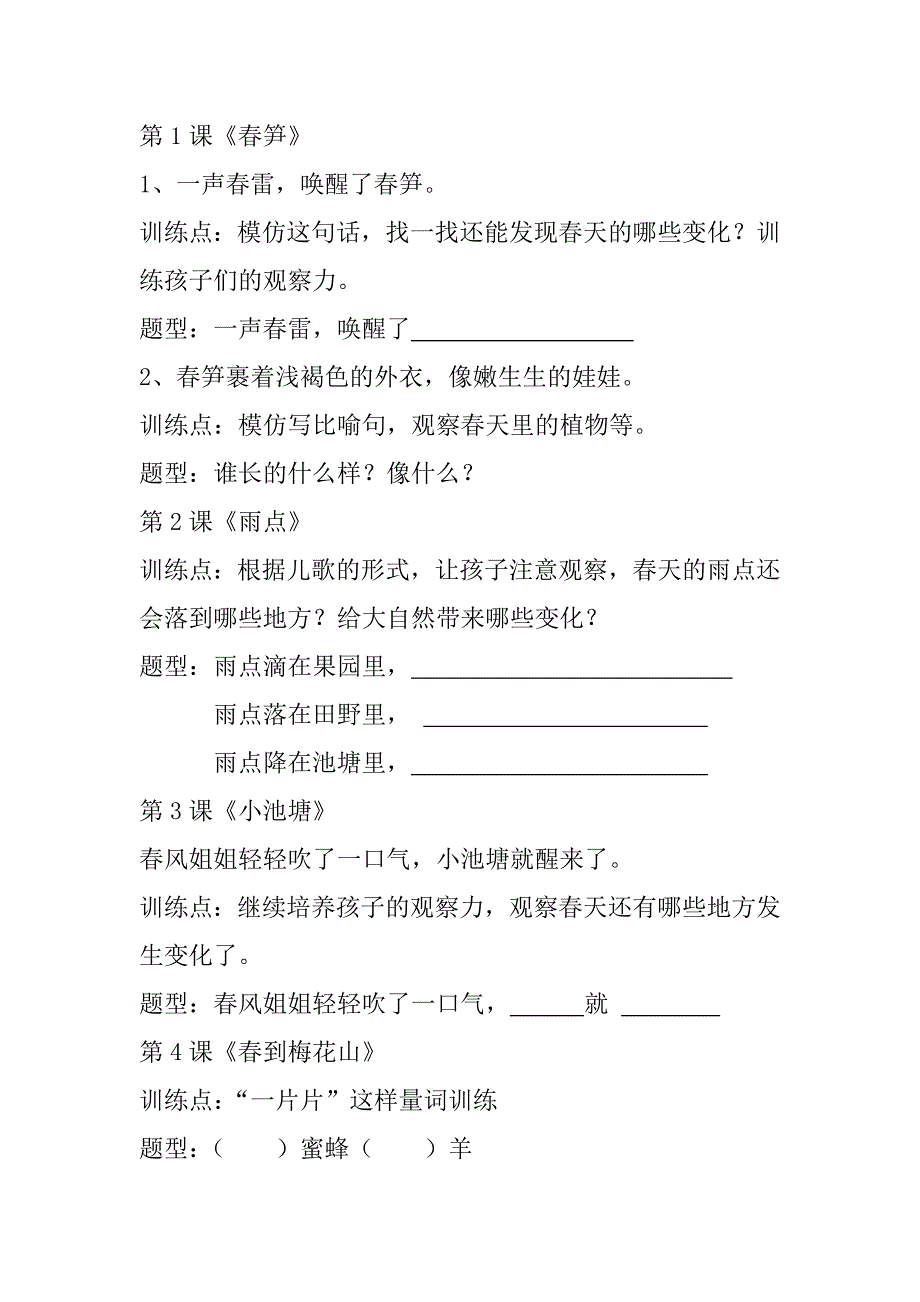 第 1 课《春笋》
1、一声春雷，唤醒了春笋。
训练点：模仿这句话，找一找还能发现春天的哪些变化？训
练孩子们的观察力。
题型：一声春雷，唤醒了__________________
2、春笋裹着浅褐色的外衣，像嫩生生的娃娃。
训练点：模仿写比喻句，观察春天里的植物等。
题型：谁长的什么样？像什么？
第 2 课《雨点》
训练点：根据儿歌的形式，让孩子注意观察，春天的雨点还
会落到哪些地方？给大自然带来哪些变化？
题型：雨点滴在果园里，__________________________
雨点落在田野里， _______________________
雨点降在池塘里，________________________
第 3 课《小池塘》
春风姐姐轻轻吹了一口气，小池塘就醒来了。
训练点：继续培养孩子的观察力，观察春天还有哪些地方发
生变化了。
题型：春风姐姐轻轻吹了一口气，______就 ________
第 4 课《春到梅花山》
训练点：“一片片”这样量词训练
题型：（　　）蜜蜂（　　）羊